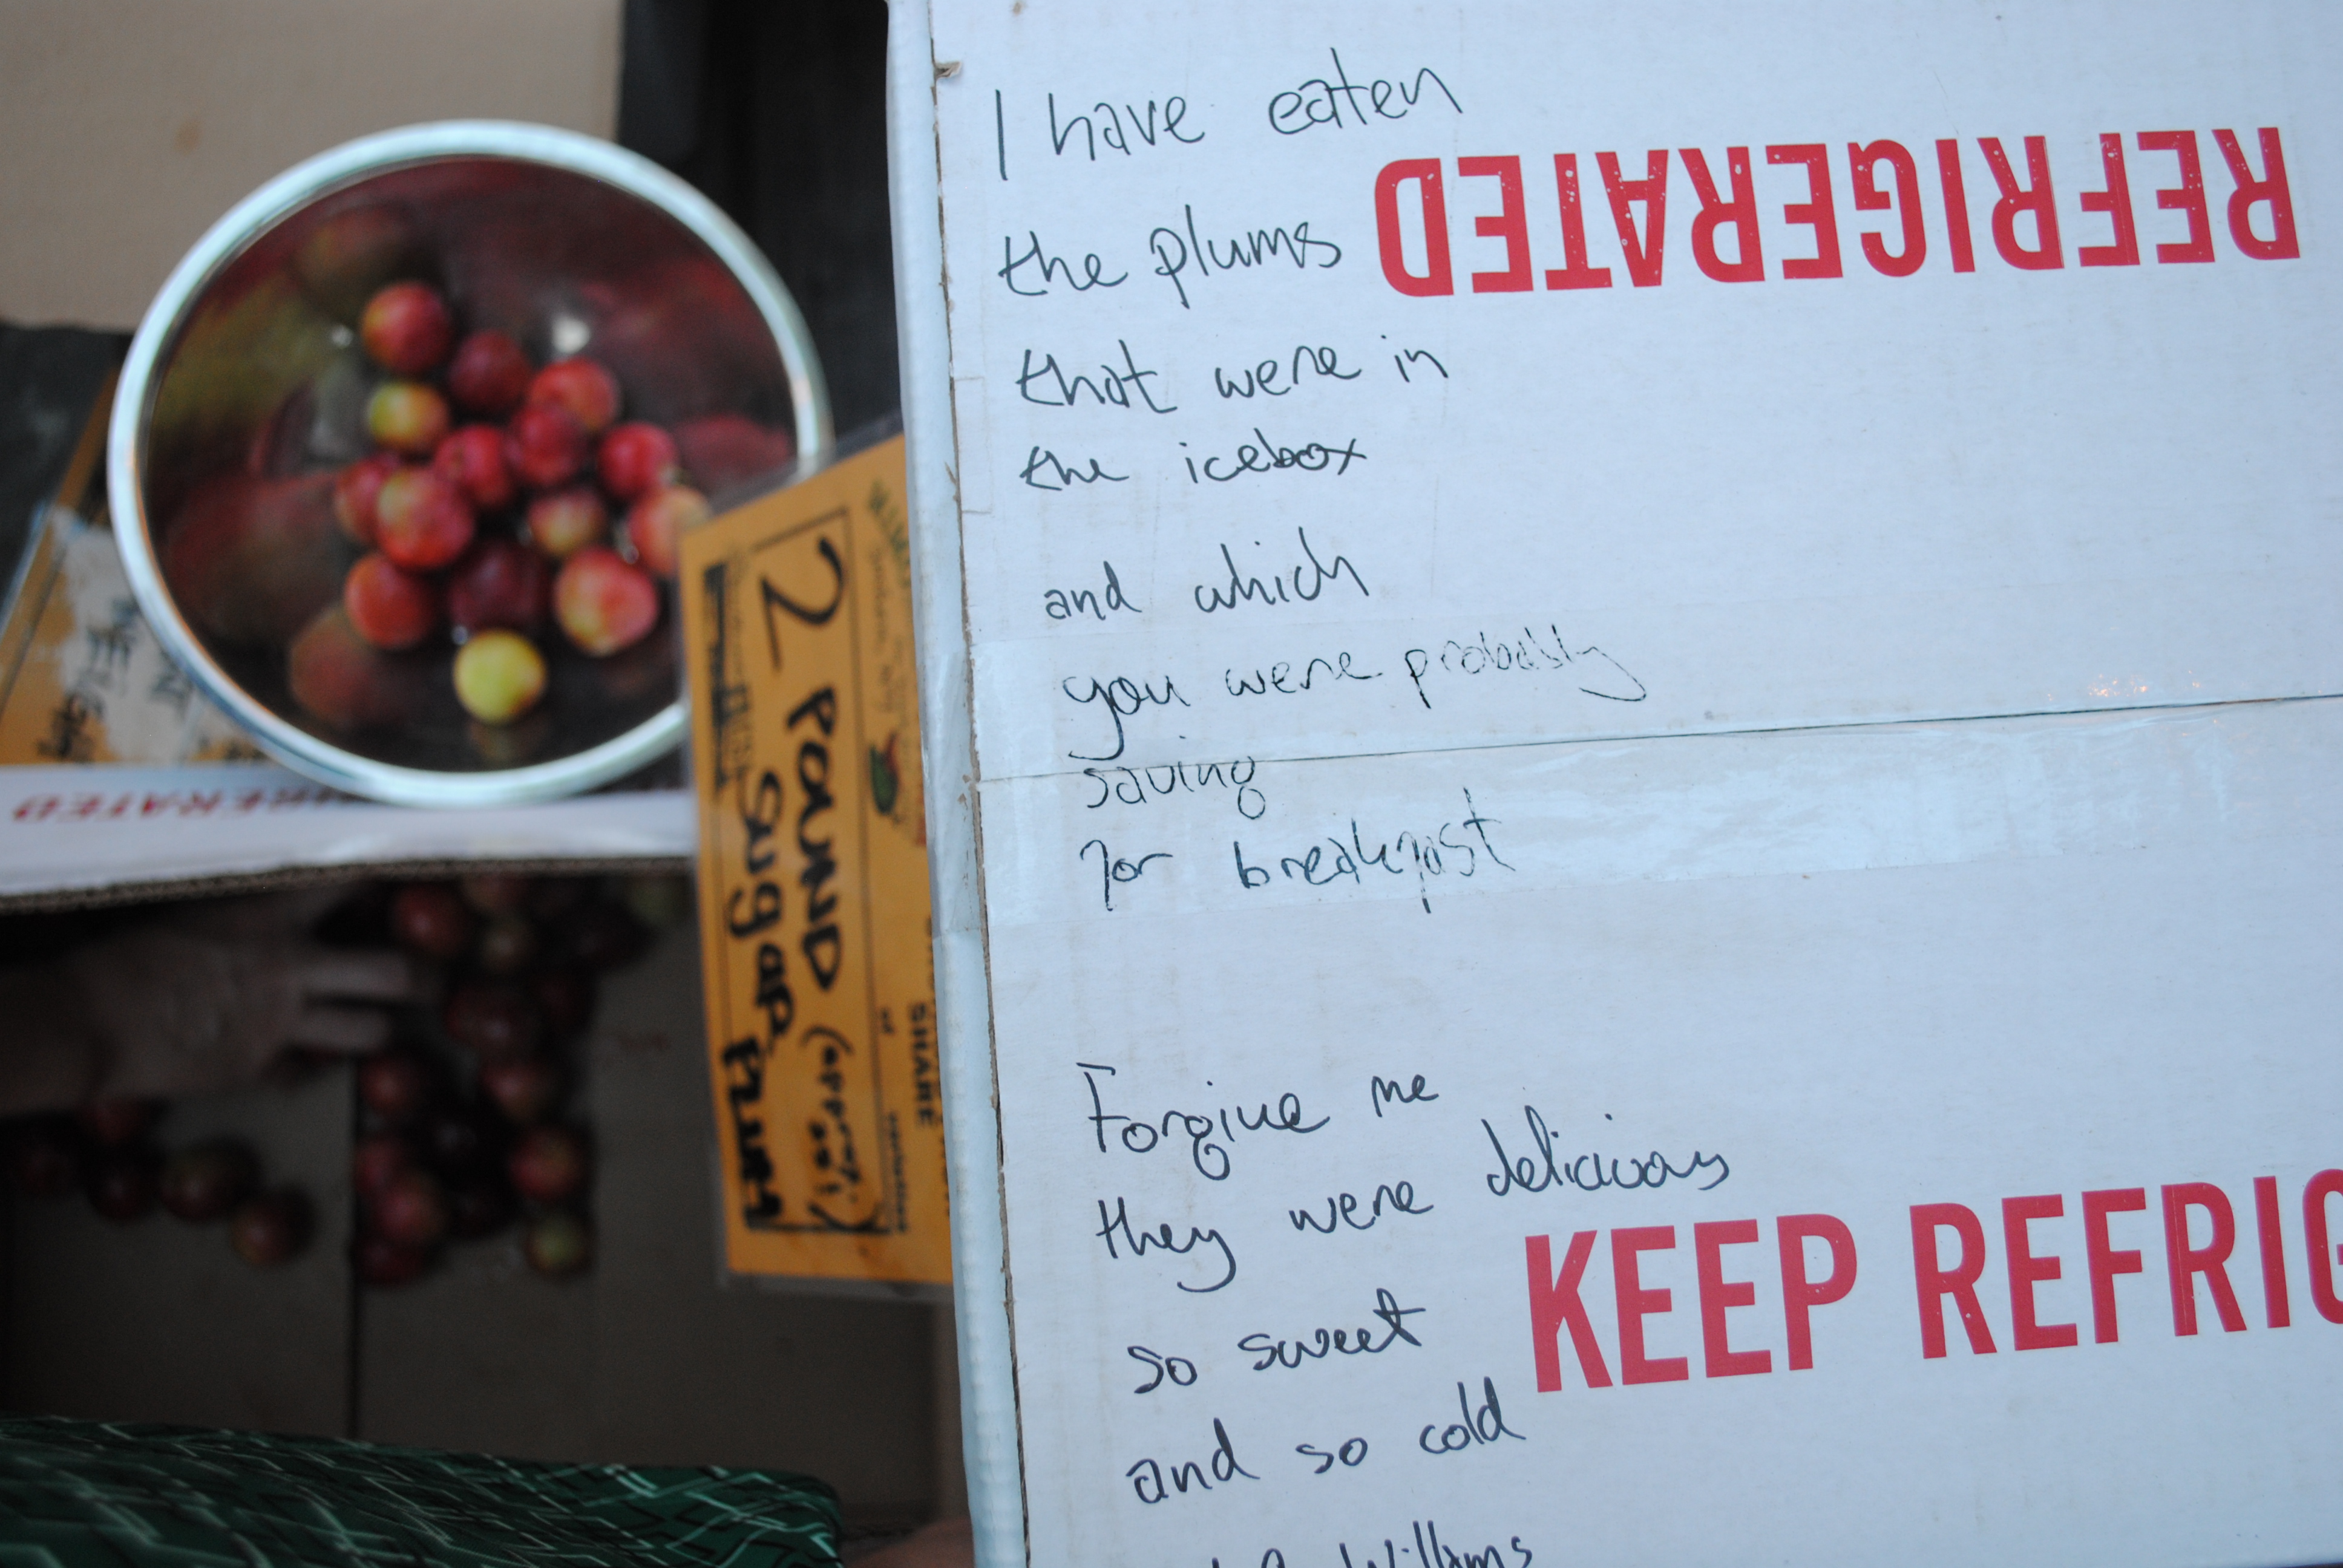 I have eaten
the plums
that were in
the icebox
and which
you were probably
saving
for breakfast
Forgive me
they were delicious
so sweet
and so cold
Williams
REFRIGERATED
KEEP REFRIG
2 POUND
Sugar
PLUM
SHARE
of